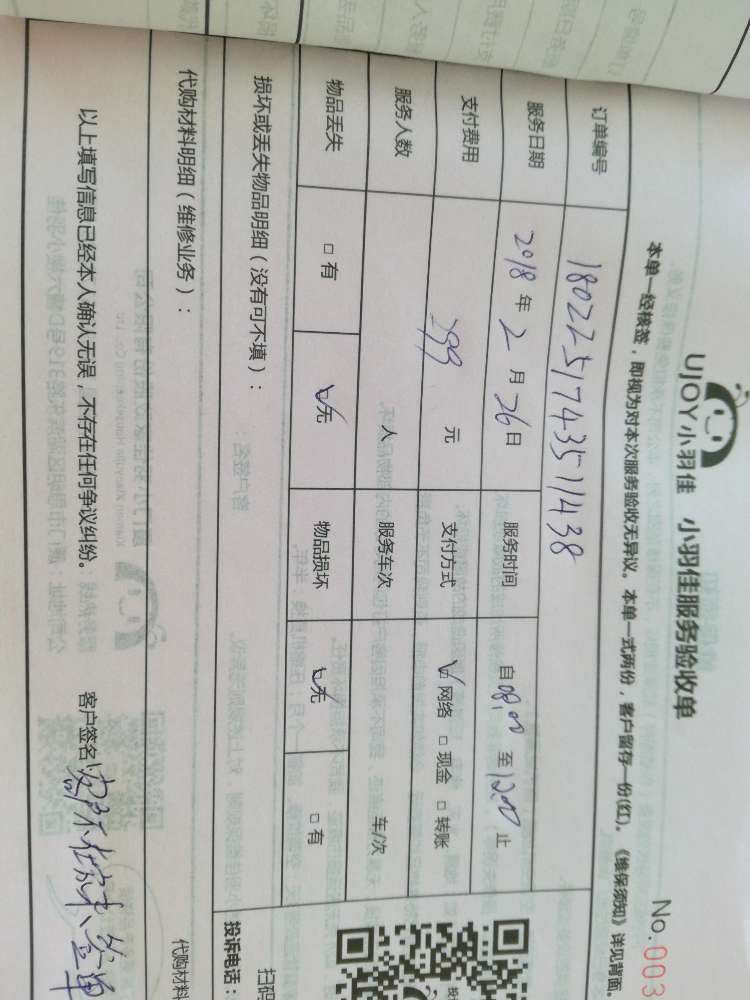 UJOY小羽佳 小羽佳服务验收单
No.003
本单一经核签，即视为对本次服务验收无异议。本单一式两份，客户留存一份(红)。《维保须知》详见背面。
订单编号 180225174351438
服务日期 2018年2月26日 服务时间 自08:00至12:00止
支付费用 299元 支付方式 ☑网络 □现金 □转账
服务人数 人 服务车次 车/次
物品丢失 □有 ☑无 物品损坏 ☑无 □有
损坏或丢失物品明细（没有可不填）：
投诉电话：
扫码
代购材料明细（维修业务）：
代购材料
以上填写信息已经本人确认无误，不存在任何争议纠纷。 客户签名 客户不在家不签单